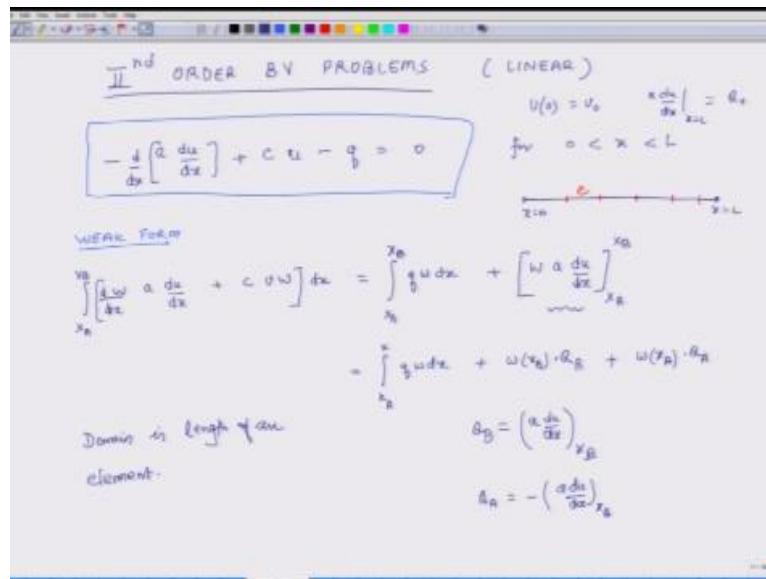 IInd ORDER BV PROBLEMS ( LINEAR )
U(0) = U₀ a du/dx |x=L = Q₀
- d/dx [ a du/dx ] + c u - q = 0
for 0 < x < L
e
x=0 x=L
WEAK FORM
∫_{xA}^{xB} [ dw/dx a du/dx + c u w ] dx = ∫_{xA}^{xB} q w dx + [ w a du/dx ]_{xA}^{xB}
= ∫_{xA}^{x} q w dx + w(xB)·QB + w(xA)·QA
Domain is length of an
element.
QB = ( a du/dx )xB
QA = - ( a du/dx )xA